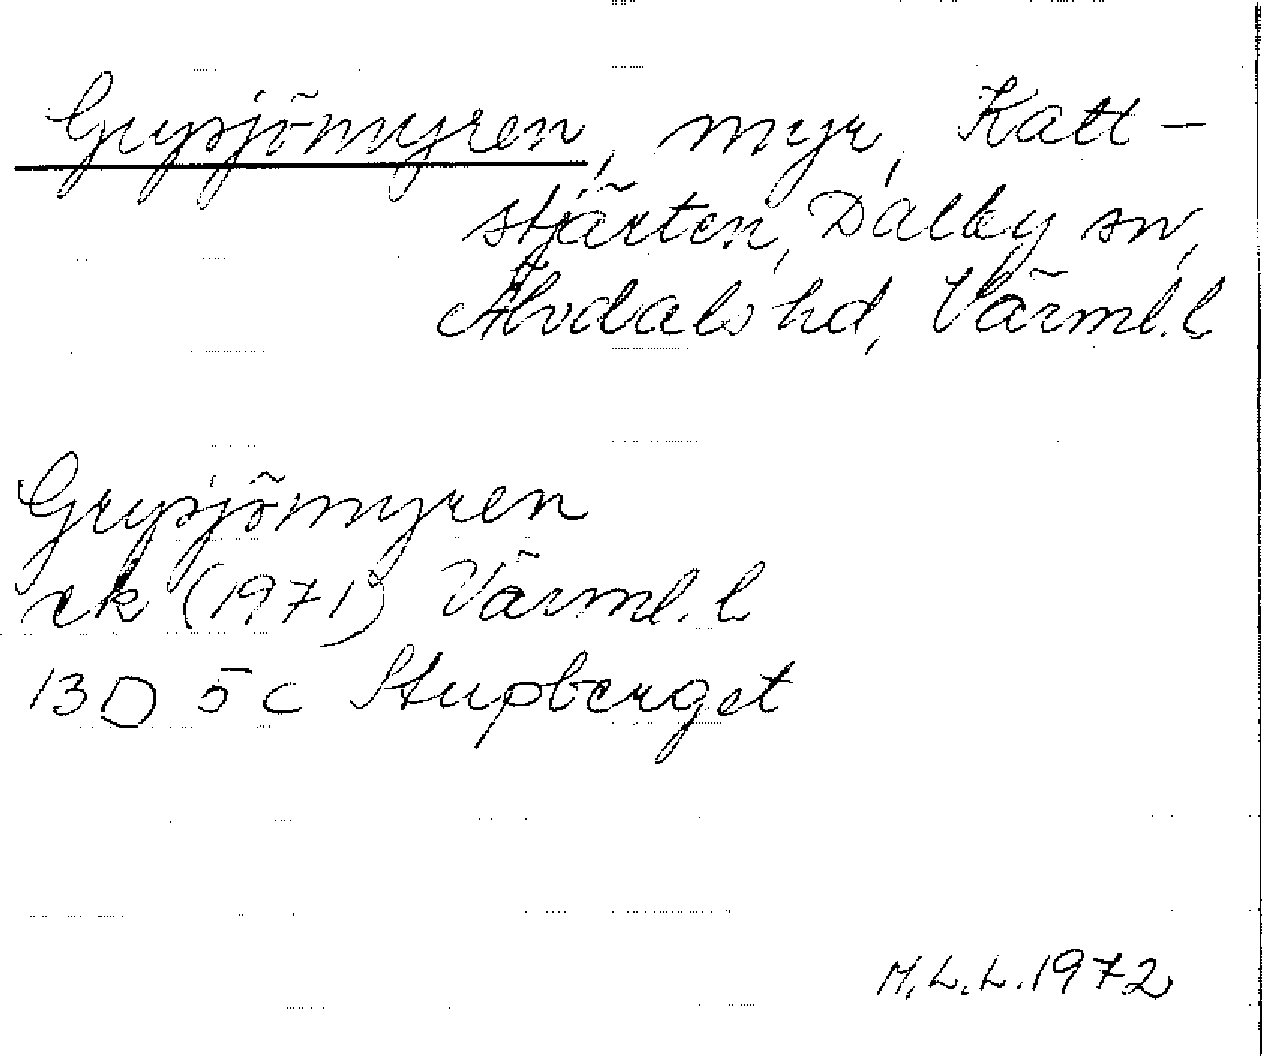 Grysjömyren, myr, Katt-
stjärten, Dalby sn,
Älvdals hd, Värml. l
Grysjömyren
ek (1971) Värml. l
13D 5c Stupberget
M.L.L. 1972